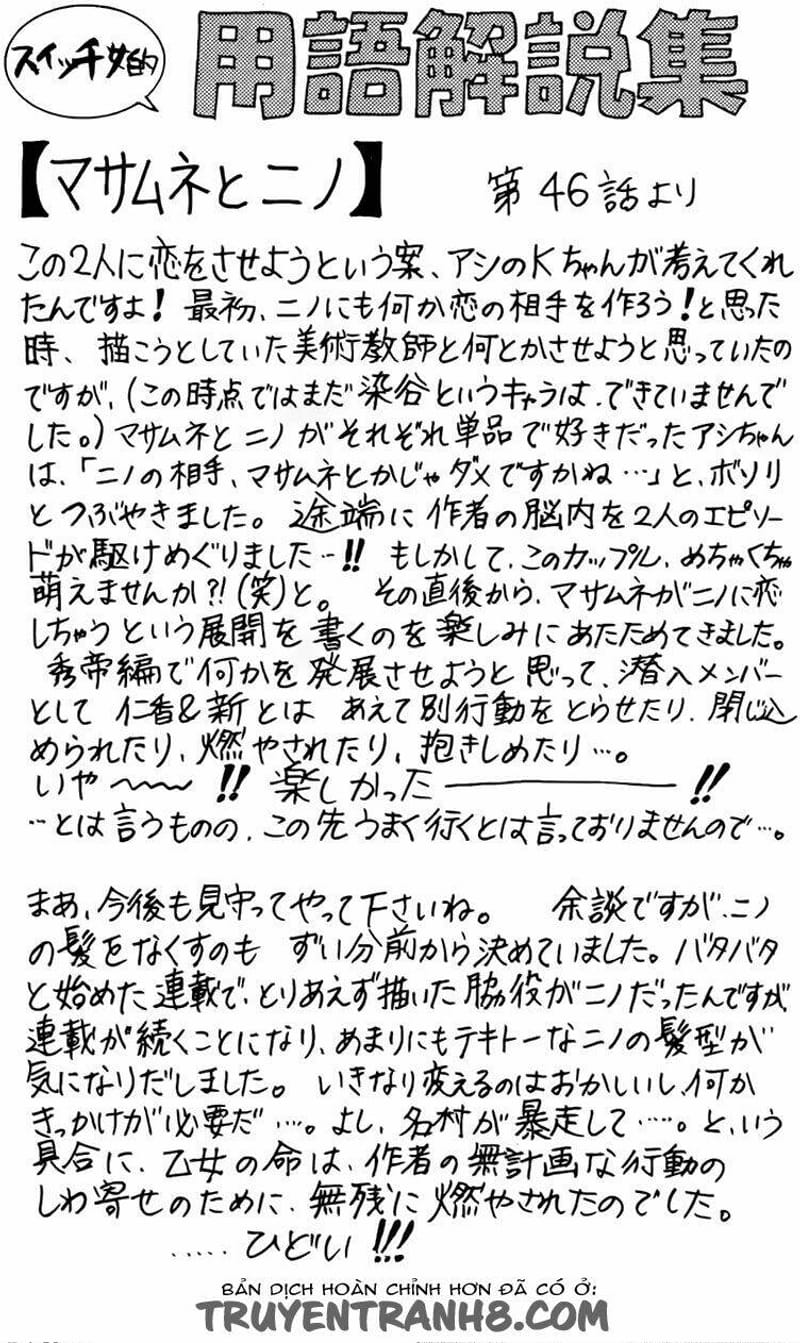 スイッチ女的
用語解説集
【マサムネとニノ】 第46話より
この2人に恋をさせようという案、アシのKちゃんが考えてくれ
たんですよ！ 最初、ニノにも何か恋の相手を作ろう！と思った
時、描こうとしていた美術教師と何とかさせようと思っていたの
ですが、（この時点ではまだ染谷というキャラは、できていませんで
した。）マサムネとニノがそれぞれ単品で好きだったアシちゃん
は、「ニノの相手、マサムネとかじゃダメですかね…」と、ボソリ
とつぶやきました。途端に作者の脳内を2人のエピソー
ドが駆けめぐりました…!! もしかして、このカップル、めちゃくちゃ
萌えませんか?!（笑）と。 その直後から、マサムネがニノに恋
しちゃうという展開を書くのを楽しみにあたためてきました。
秀帝編で何かを発展させようと思って、潜入メンバー
として仁香&新とは あえて別行動をとらせたり、閉じ込
められたり、燃やされたり、抱きしめたり…。
いや〜〜〜!! 楽しかった―――――!!
…とは言うものの、この先うまく行くとは言っておりませんので…。
まあ、今後も見守ってやって下さいね。 余談ですが、ニノ
の髪をなくすのも ずい分前から決めていました。バタバタ
と始めた連載で、とりあえず描いた脇役がニノだったんですが、
連載が続くことになり、あまりにもテキトーなニノの髪型が
気になりだしました。 いきなり変えるのはおかしいし、何か
きっかけが必要だ…。よし、名村が暴走して……。と、いう
具合に、乙女の命は、作者の無計画な行動の
しわ寄せのために、無残に燃やされたのでした。
……ひどい!!!
BẢN DỊCH HOÀN CHỈNH HƠN ĐÃ CÓ Ở:
TRUYENTRANH8.COM